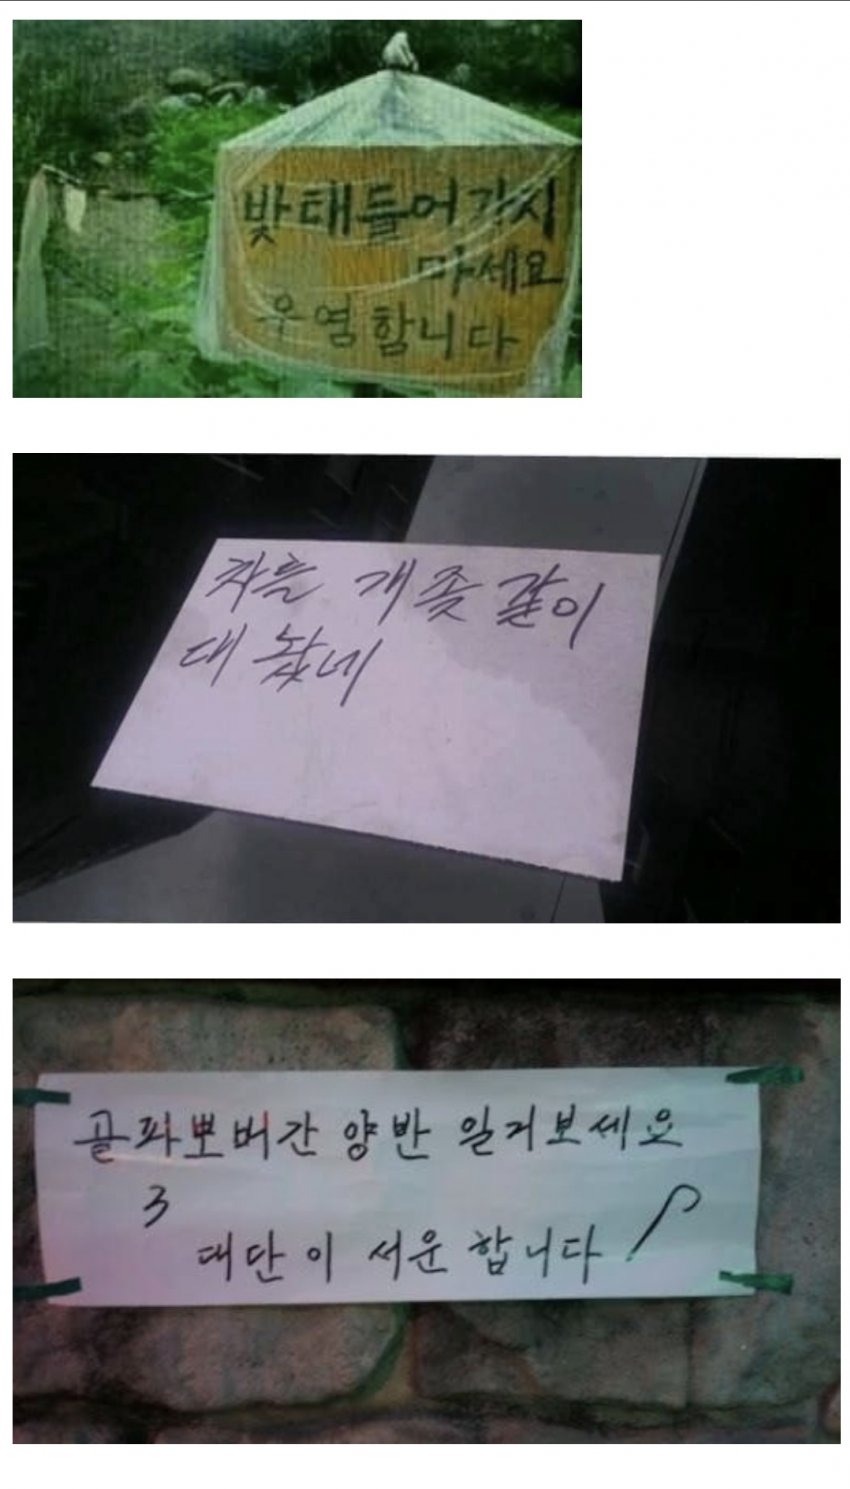 밧태들어가시
마세요
우염합니다
차를 개좆같이
대 놨네
골파뽀버간 양반 일거보세요
3
대단이 서운합니다